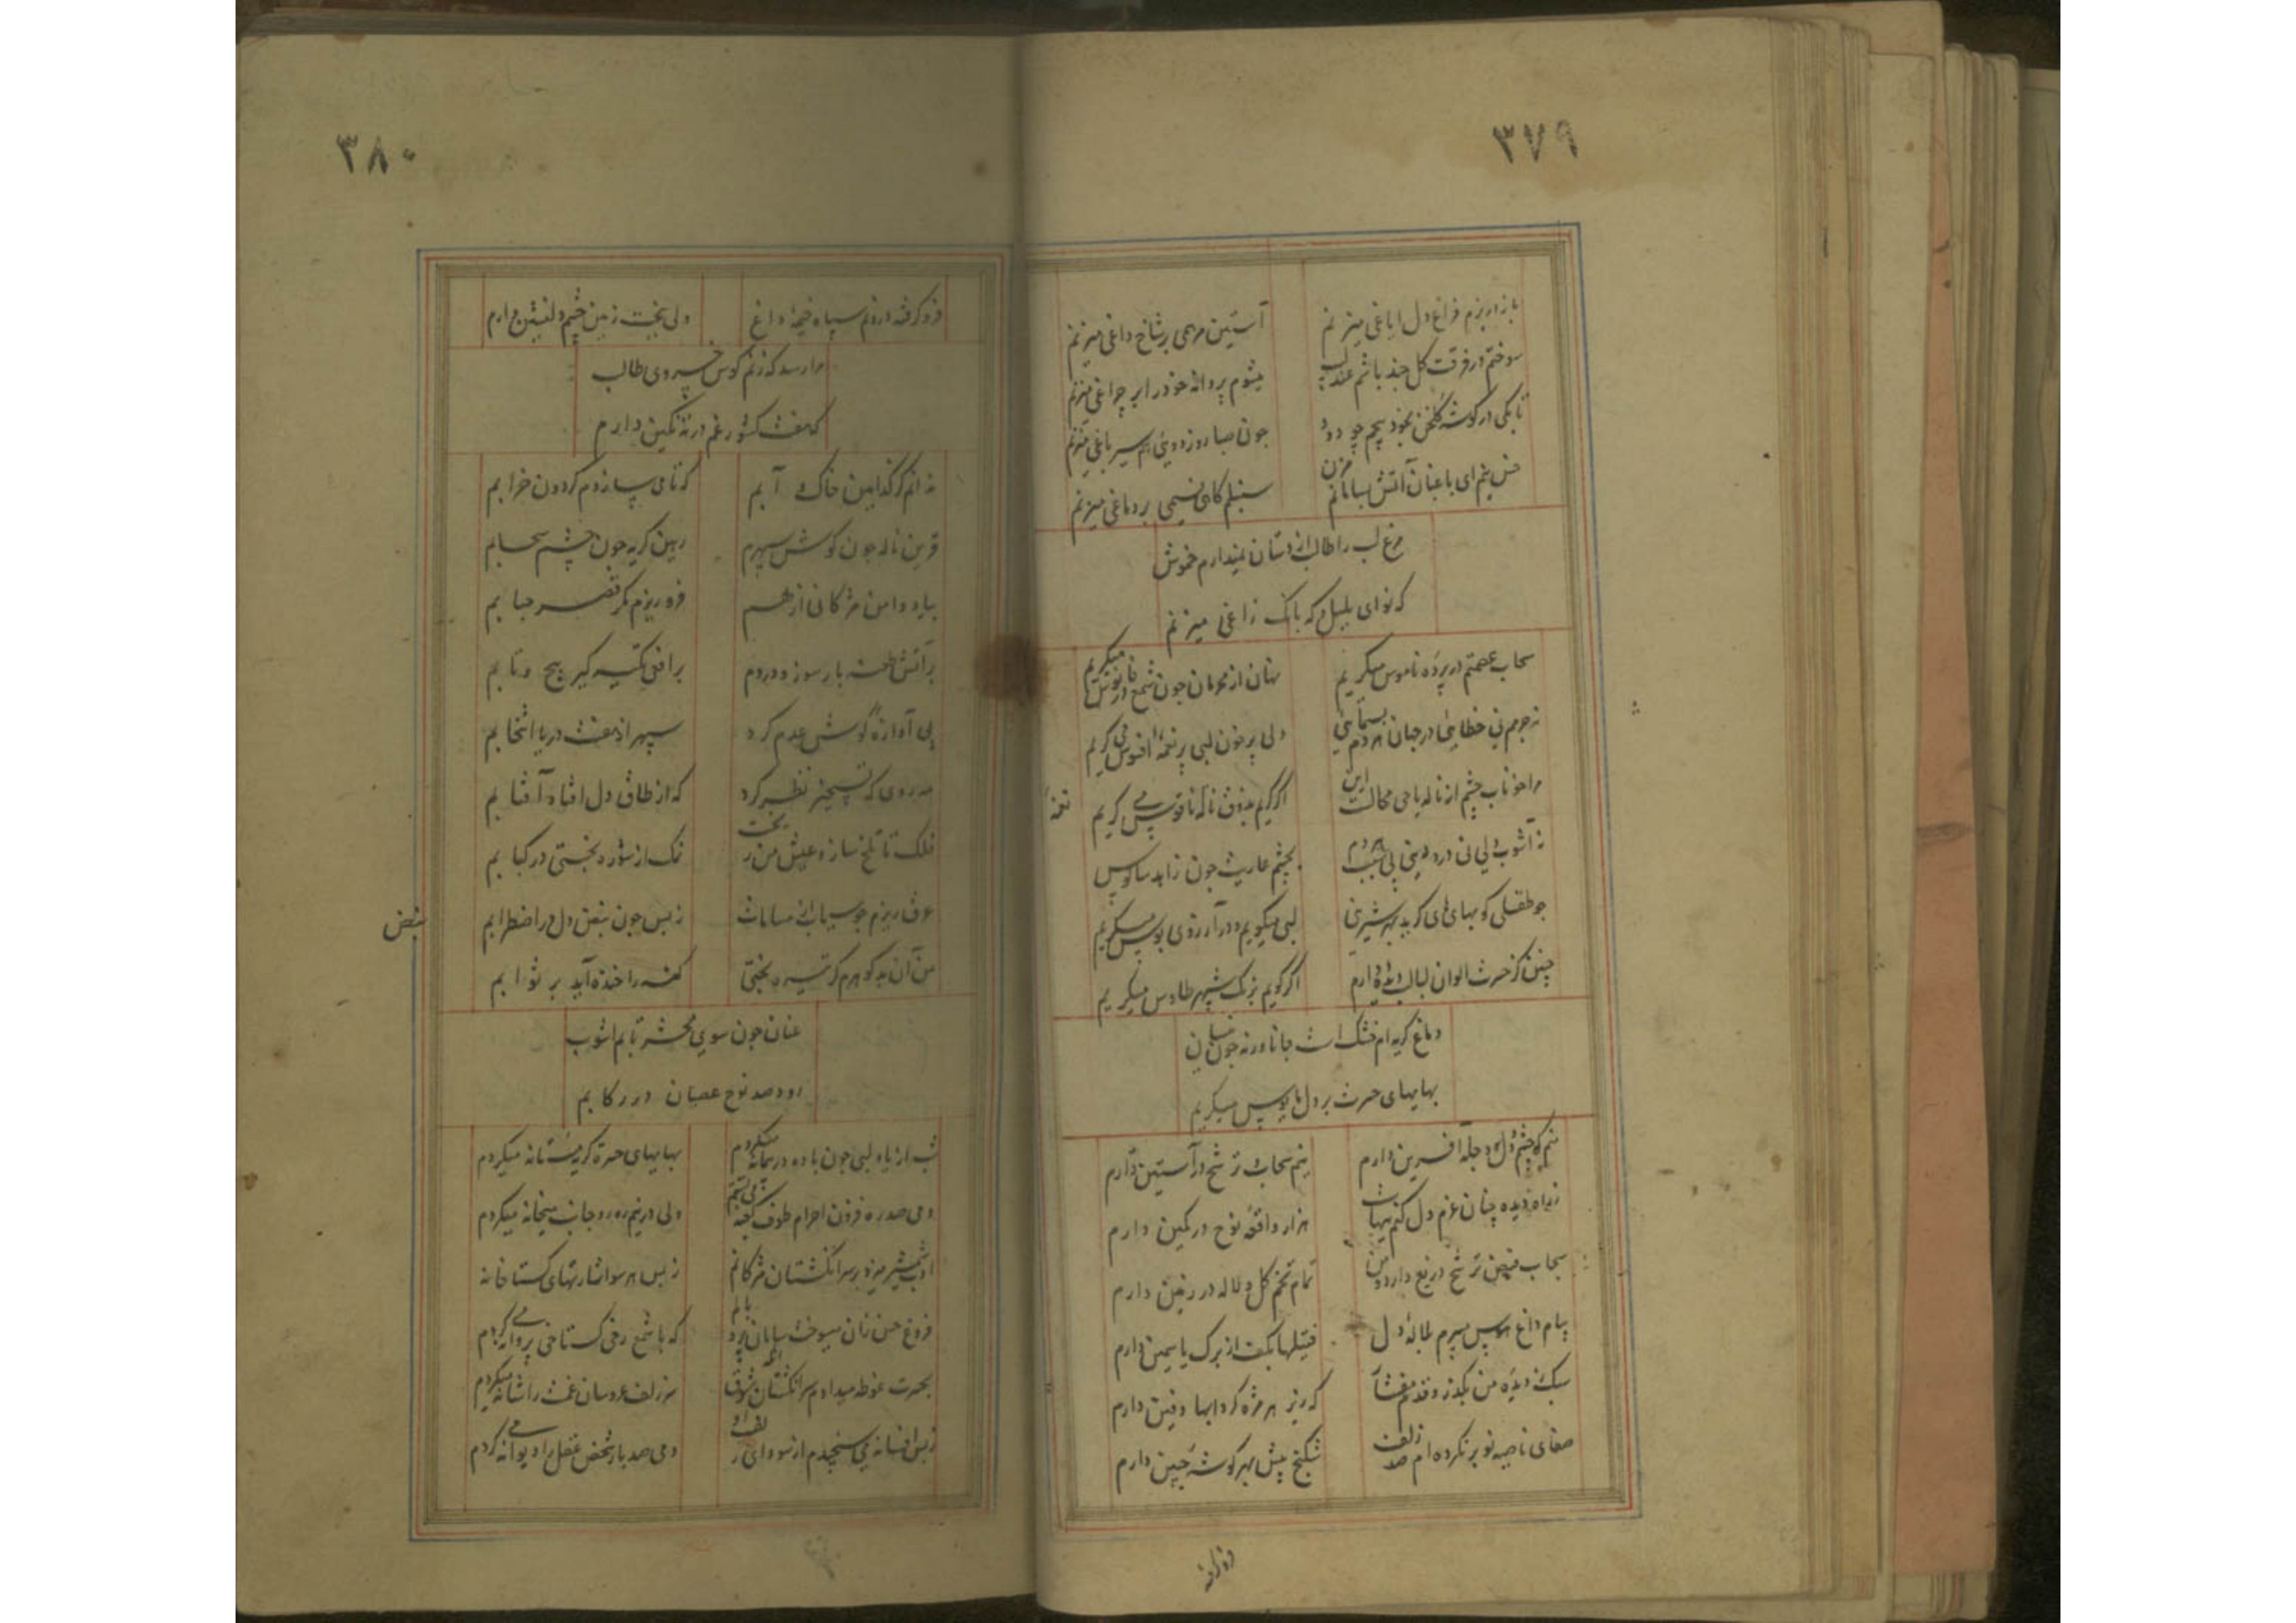 ۳۷۹
باز در بزم فراغ دل ایاغی میزنم
آستین مرهمی بر شاخ داغی میزنم
سوختم در فرقت گل چند باشم عندلیب
میشوم پروانه خود را بر چراغی میزنم
تا بکی در گوشه گلخن بخود پیچم چو دود
چون صبا روزی دوئی هم سیر باغی میزنم
ای باغبان آتش سامانم مزن
سنبلم گاهی نسیمی بر دماغی میزنم
مرغ لب را طالب از دستان نمیدارم خموش
که نوای بلبل و که بانک زاغی میزنم
سحاب عصمتم در پرده ناموس میگریم
نهان از محرمان چون شمع در فانوس میگریم
نه جرمم نی خطایی در جهان هر دم
ولی پر خون لبی پر نغمه افسوس می گریم
مرا خوناب چشم از ناله یاحی محالست این
اگر گریم بذوق ناله ناقوس می گریم
نه آشوب دلی نی درد دینی بی سبب هر دم
بچشم عاریت چون زاهد سالوس
چو طفلی کو بهای های گرید بهر شیرینی
لبی میگویم و در آرزوی بوس میگریم
چنین کز حسرت الوان لبالب دیده دارم
اگر گویم برنگ شهپر طاوس میگریم
دماغ گریه ام خشک است جانا ورنه چون
بهایهای حسرت بر دل مایوس میگریم
منم که چشم و دل دجله آفرین دارم
نیم سحاب و ترشح در آستین دارم
ز راه دیده چنان عزم دل کنم هیهات
هزار واقعه نوح در کمین دارم
سحاب فیض ترشح دریغ دارد و من
تمام تخم گل و لاله در زمین دارم
پیام داغ هوس میبرم بلاله دل
فتیلها بکف از برک یاسمین دارم
سبک ز دیده من بگذر و قدم مفشار
که زیر هر مژه گردابها دفین دارم
صفای ناصیه نو بر نکرده ام صد زلف
شکنج بیش بهر گوشه جبین دارم
نغمه
فرو گرفته
۳۸۰
فرو گرفته درونم سپاه خیمه داغ
ولی بخت زمین چشم دلنشین دارم
مرا رسد که زنم کوس خسروی طالب
که هفت کشور غم در ته نگین دارم
نه آنم کز کدامین خاک و آبم
که تا می سازدم گردون خرابم
قرین ناله چون گوش سپهرم
رهین گریه چون چشم سحابم
بیاد دامن مژگانی از هم
فرو ریزم مگر قصر حبابم
بر آتش خفته بار سوز و دردم
بر افعی تکیه گیر پیچ و تابم
پی آوازه گوش عدم کرد
سپهر از هفت دریا انتخابم
مه روی که تسخیر نظر کرد
که از طاق دل افتاد آفتابم
فلک تا تلخ سازد عیش من ریخت
نمک از شوره بختی در کبابم
عرق ریزم چو سیماب از مسامات
ز بس چون نبض دل در اضطرابم
من آن بدگوهرم کز تیره بختی
گنه را خنده آید بر ثوابم
عنان چون سوی محشر تابم آشوب
رود صد نوح عصیان در رکابم
شب از یاد لبی چون باده در پیمانه میکردم
بهایهای حسرت گریه مستانه میکردم
دمی صد ره فزون احرام طوف کعبه می بستم
ولی در نیم ره رو جانب میخانه میکردم
ادب شمشیر میزد بر سر انگشتان مژگانم
ز بس هر سو اشارتهای گستاخانه
فروغ حسن زان میسوخت سامان پر و بالم
که با شمع رخی گستاخی پروانه می کردم
بحسرت غوطه میدادم سر انگشتان شوق
سر زلف عروسان غمت را شانه میکردم
ز بس افسانه می سنجیدم از سودای زلف او
دمی صد بار شخص عقل را دیوانه می کردم
نبض